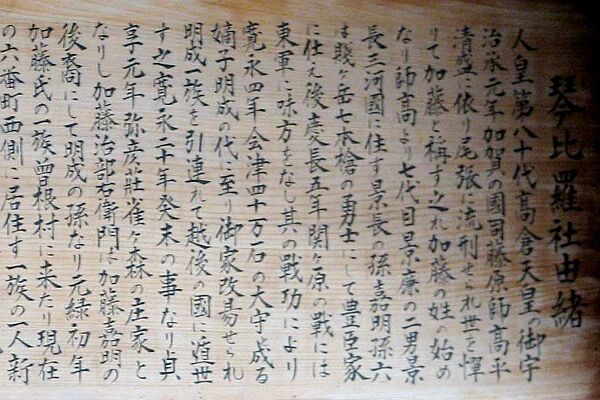 琴比羅社由緒
人皇第八十代高倉天皇の御宇
治承元年加賀の國司藤原師高平
清盛に依り尾張に流刑せられ世を憚
りて加藤と稱す之れ加藤の姓の始め
なり師高より七代目景廉の二男景
長三河國に住す景長の孫嘉明孫六
は賤ヶ岳七本槍の勇士にして豊臣家
に仕え後慶長五年関ヶ原の戰には
東軍に味方をなし其の戰功により
寛永四年会津四十万石の大守成る
嫡子明成の代に至り御家改易せられ
明成一族を引連れて越後の國に遁世
す之寛永二十年癸未の事なり貞
享元年弥彦莊雀ヶ森の庄家と
なりし加藤治部右衛門は加藤嘉明の
後裔にして明成の孫なり元緑初年
加藤氏の一族曽根村に来たり現在
の六番町西側に居住す一族の一人新